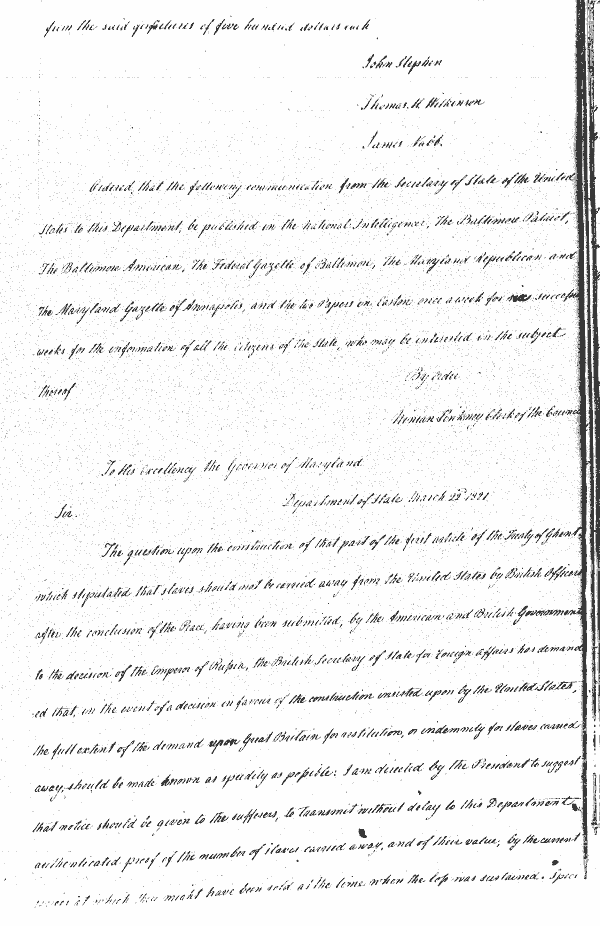 from the said forfeitures of five hundred dollars each
John Stephen
Thomas H. Wilkinson
James Nabb.
Ordered, that the following communication from the Secretary of State of the United
States to this Department, be published in the National Intelligencer, The Baltimore Patriot,
The Baltimore American, The Federal Gazette of Baltimore, The Maryland Republican and
The Maryland Gazette of Annapolis, and the two Papers in Easton once a week for six successive
weeks for the information of all the Citizens of the State, who may be interested in the subject
thereof
By order
Ninian Pinkney Clerk of the Council
To His Excellency the Governor of Maryland
Department of State March 22d 1821
Sir.
The question upon the construction of that part of the first article of the Treaty of Ghent,
which stipulated that slaves should not be carried away from the United States by British Officers
after the conclusion of the Peace, having been submitted, by the American and British Governments
to the decision of the Emperor of Russia, the British Secretary of State for Foreign affairs has demand
ed that, in the event of a decision in favour of the construction insisted upon by the United States,
the full extent of the demand upon Great Britain for restitution, or indemnity for slaves carried
away, should be made known as speedily as possible: I am directed by the President to suggest
that notice should be given to the sufferers, to transmit without delay to this Department
authenticated proof of the number of slaves carried away, and of their value, by the current
prices at which they might have been sold at the time when the loss was sustained.